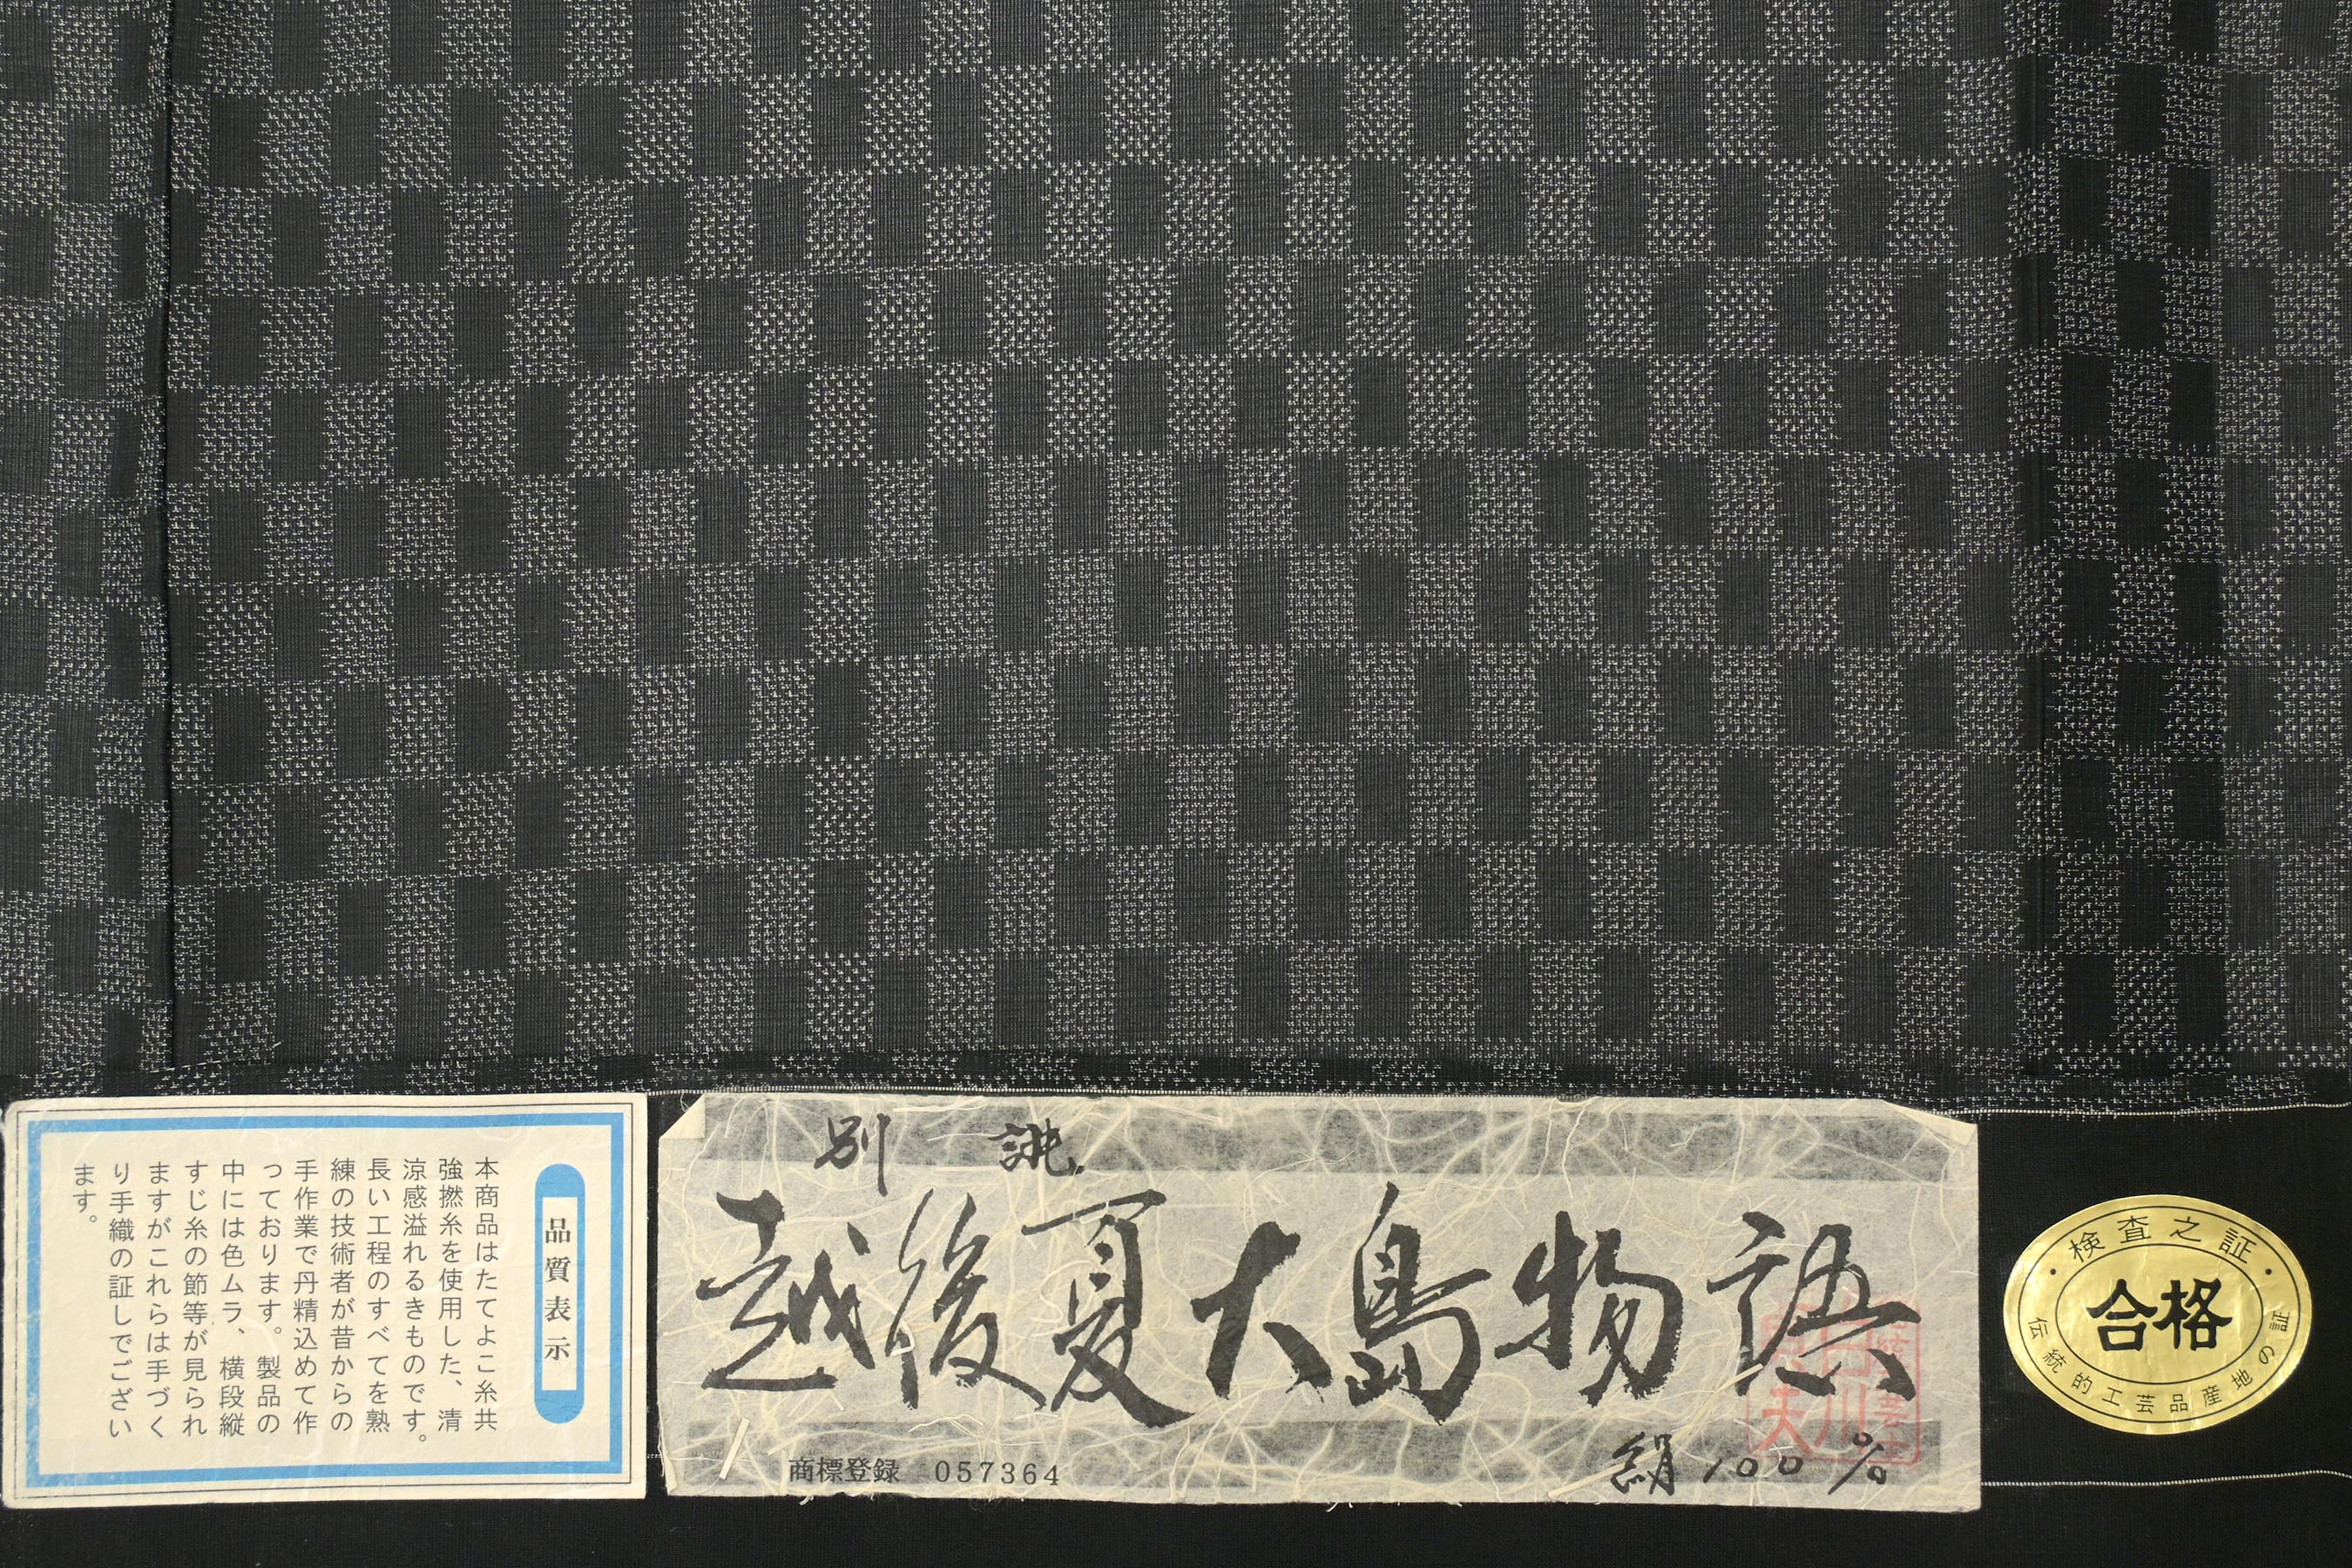 品質表示
本商品はたてよこ糸共
強撚糸を使用した、清
涼感溢れるきものです。
長い工程のすべてを熟
練の技術者が昔からの
手作業で丹精込めて作
っております。製品の
中には色ムラ、横段縦
すじ糸の節等が見られ
ますがこれらは手づく
り手織の証しでござい
ます。
別誂
越後夏大島物語
商標登録 057364
絹100%
・検査之証・
合格
伝統的工芸品産地の証